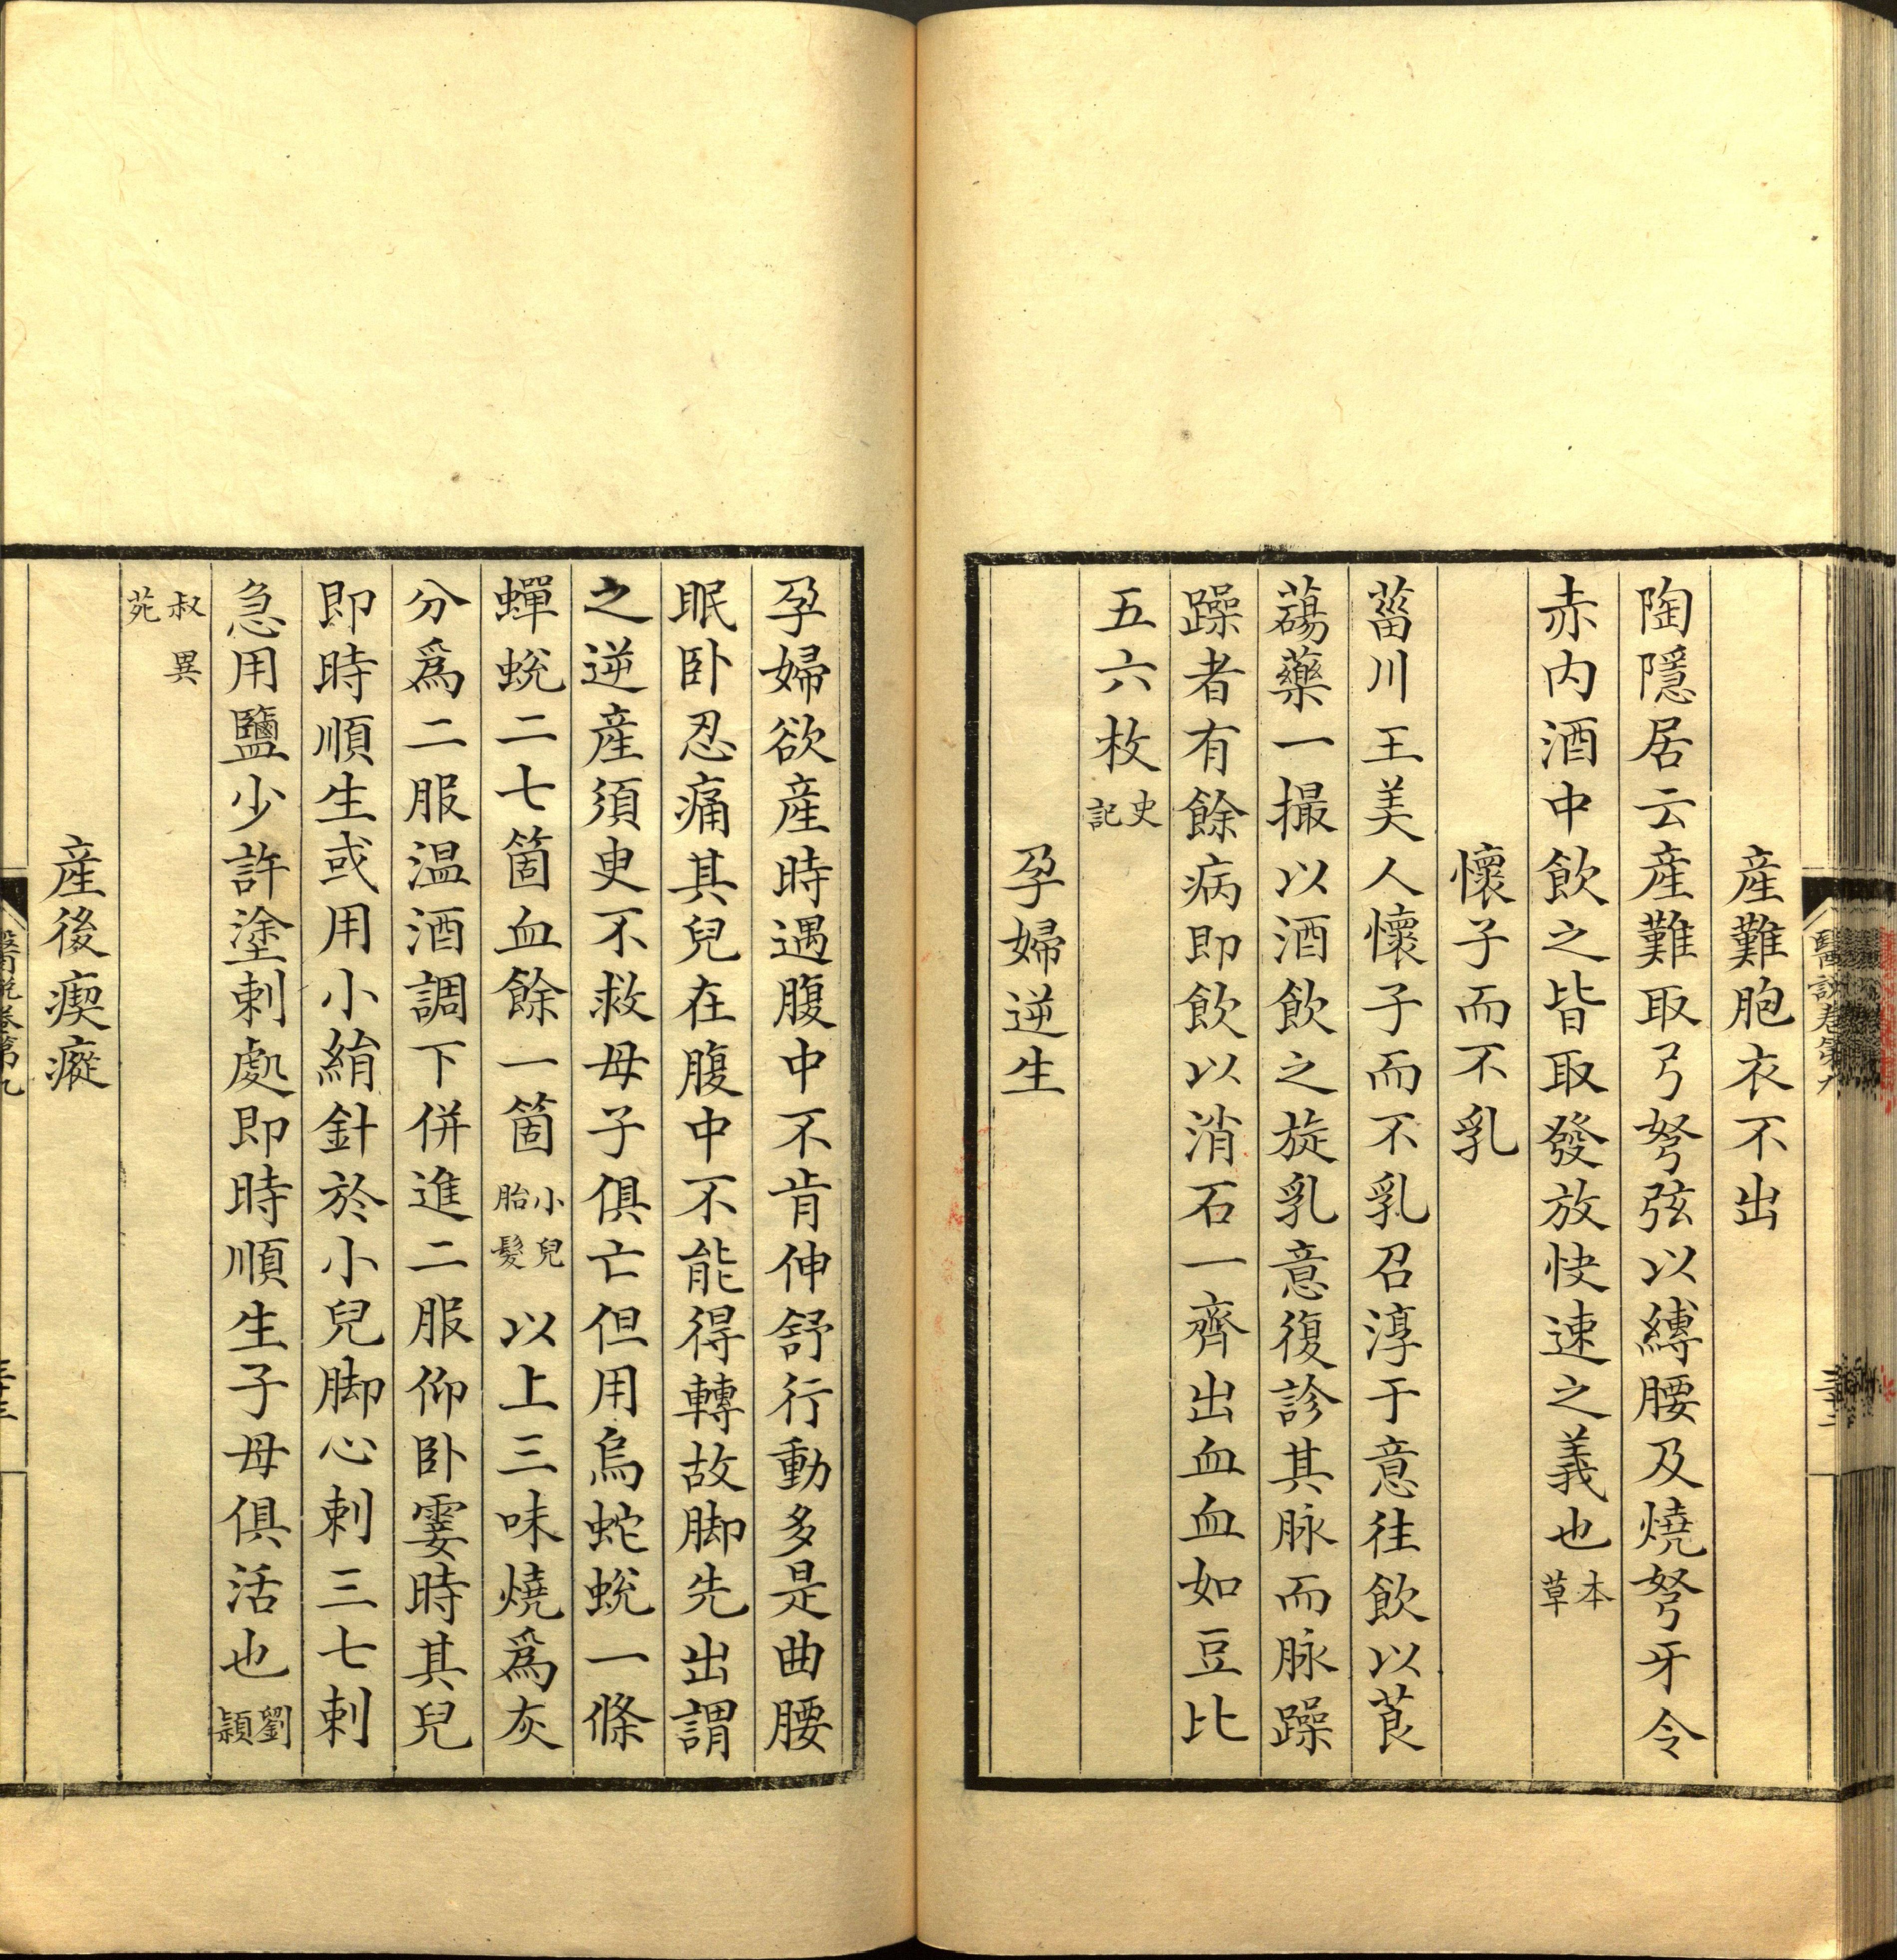 産難胞衣不出
陶隱居云産難取弓弩弦以縛腰及燒弩牙令
赤内酒中飲之皆取發放快速之義也本草
懷子而不乳
菑川王美人懷子而不乳召淳于意往飲以莨
蕩藥一撮以酒飲之旋乳意復診其脉而脉躁
躁者有餘病即飲以消石一齊出血血如豆比
五六枚史記
孕婦逆生
孕婦欲産時遇腹中不肯伸舒行動多是曲腰
眠卧忍痛其兒在腹中不能得轉故脚先出謂
之逆産須臾不救母子俱亡但用烏蛇蛻一條
蟬蛻二七箇血餘一箇小兒胎髮以上三味燒爲灰
分爲二服温酒調下併進二服仰卧霎時其兒
即時順生或用小絹針於小兒脚心刺三七刺
急用鹽少許塗刺處即時順生子母俱活也劉穎
叔異苑
産後瘈瘲
醫説卷第九